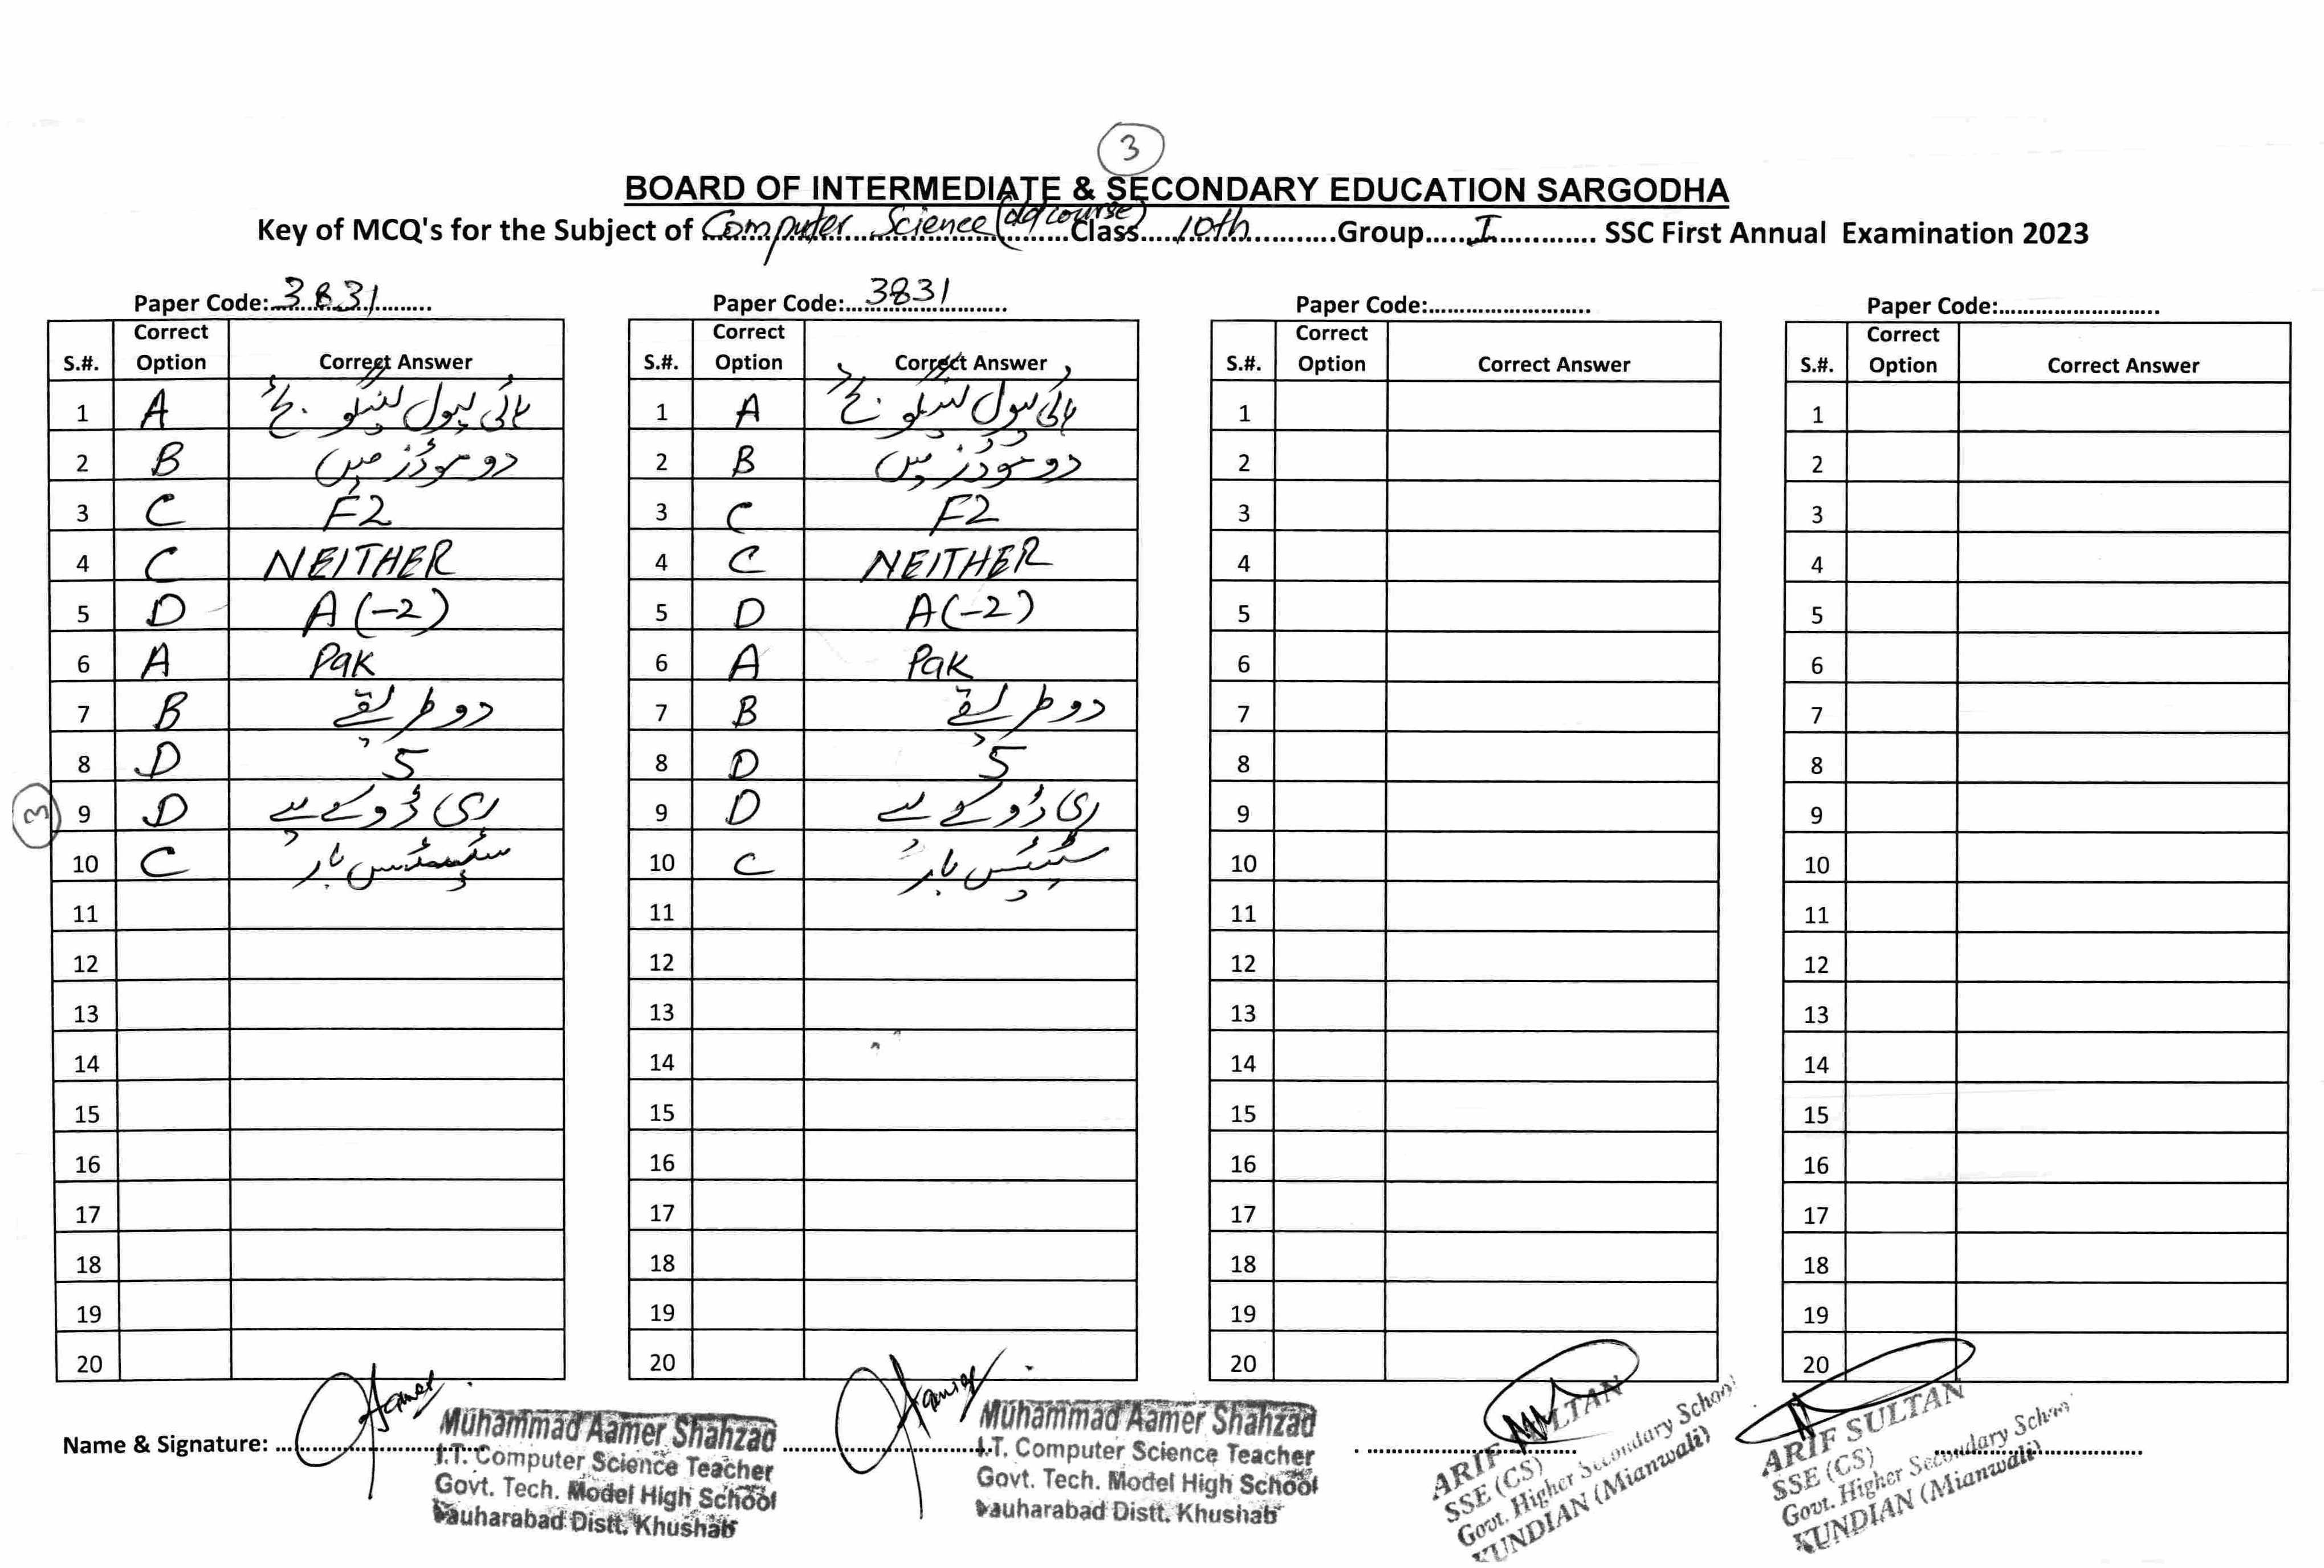 3
BOARD OF INTERMEDIATE & SECONDARY EDUCATION SARGODHA
Key of MCQ's for the Subject of Computer Science (old course) Class 10th Group I SSC First Annual Examination 2023
Paper Code: 3831
S.#. Correct Option Correct Answer
1 A ہائی لیول لینگوئج
2 B دو موڈز میں
3 C F2
4 C NEITHER
5 D A(-2)
6 A Pak
7 B دو طریقے
8 D 5
3
9 D ری ڈو کے لیے
10 C سٹیٹس بار
11
12
13
14
15
16
17
18
19
20
Paper Code: 3831
S.#. Correct Option Correct Answer
1 A ہائی لیول لینگوئج
2 B دو موڈز میں
3 C F2
4 C NEITHER
5 D A(-2)
6 A Pak
7 B دو طریقے
8 D 5
9 D ری ڈو کے لیے
10 C سٹیٹس بار
11
12
13
14
15
16
17
18
19
20
Paper Code:
S.#. Correct Option Correct Answer
1
2
3
4
5
6
7
8
9
10
11
12
13
14
15
16
17
18
19
20
Paper Code:
S.#. Correct Option Correct Answer
1
2
3
4
5
6
7
8
9
10
11
12
13
14
15
16
17
18
19
20
Name & Signature:
Muhammad Aamer Shahzad
I.T. Computer Science Teacher
Govt. Tech. Model High School
Jauharabad Distt. Khushab
Muhammad Aamer Shahzad
I.T. Computer Science Teacher
Govt. Tech. Model High School
Jauharabad Distt. Khushab
ARIF SULTAN
SSE (CS)
Govt. Higher Secondary School
KUNDIAN (Mianwali)
ARIF SULTAN
SSE (CS)
Govt. Higher Secondary School
KUNDIAN (Mianwali)